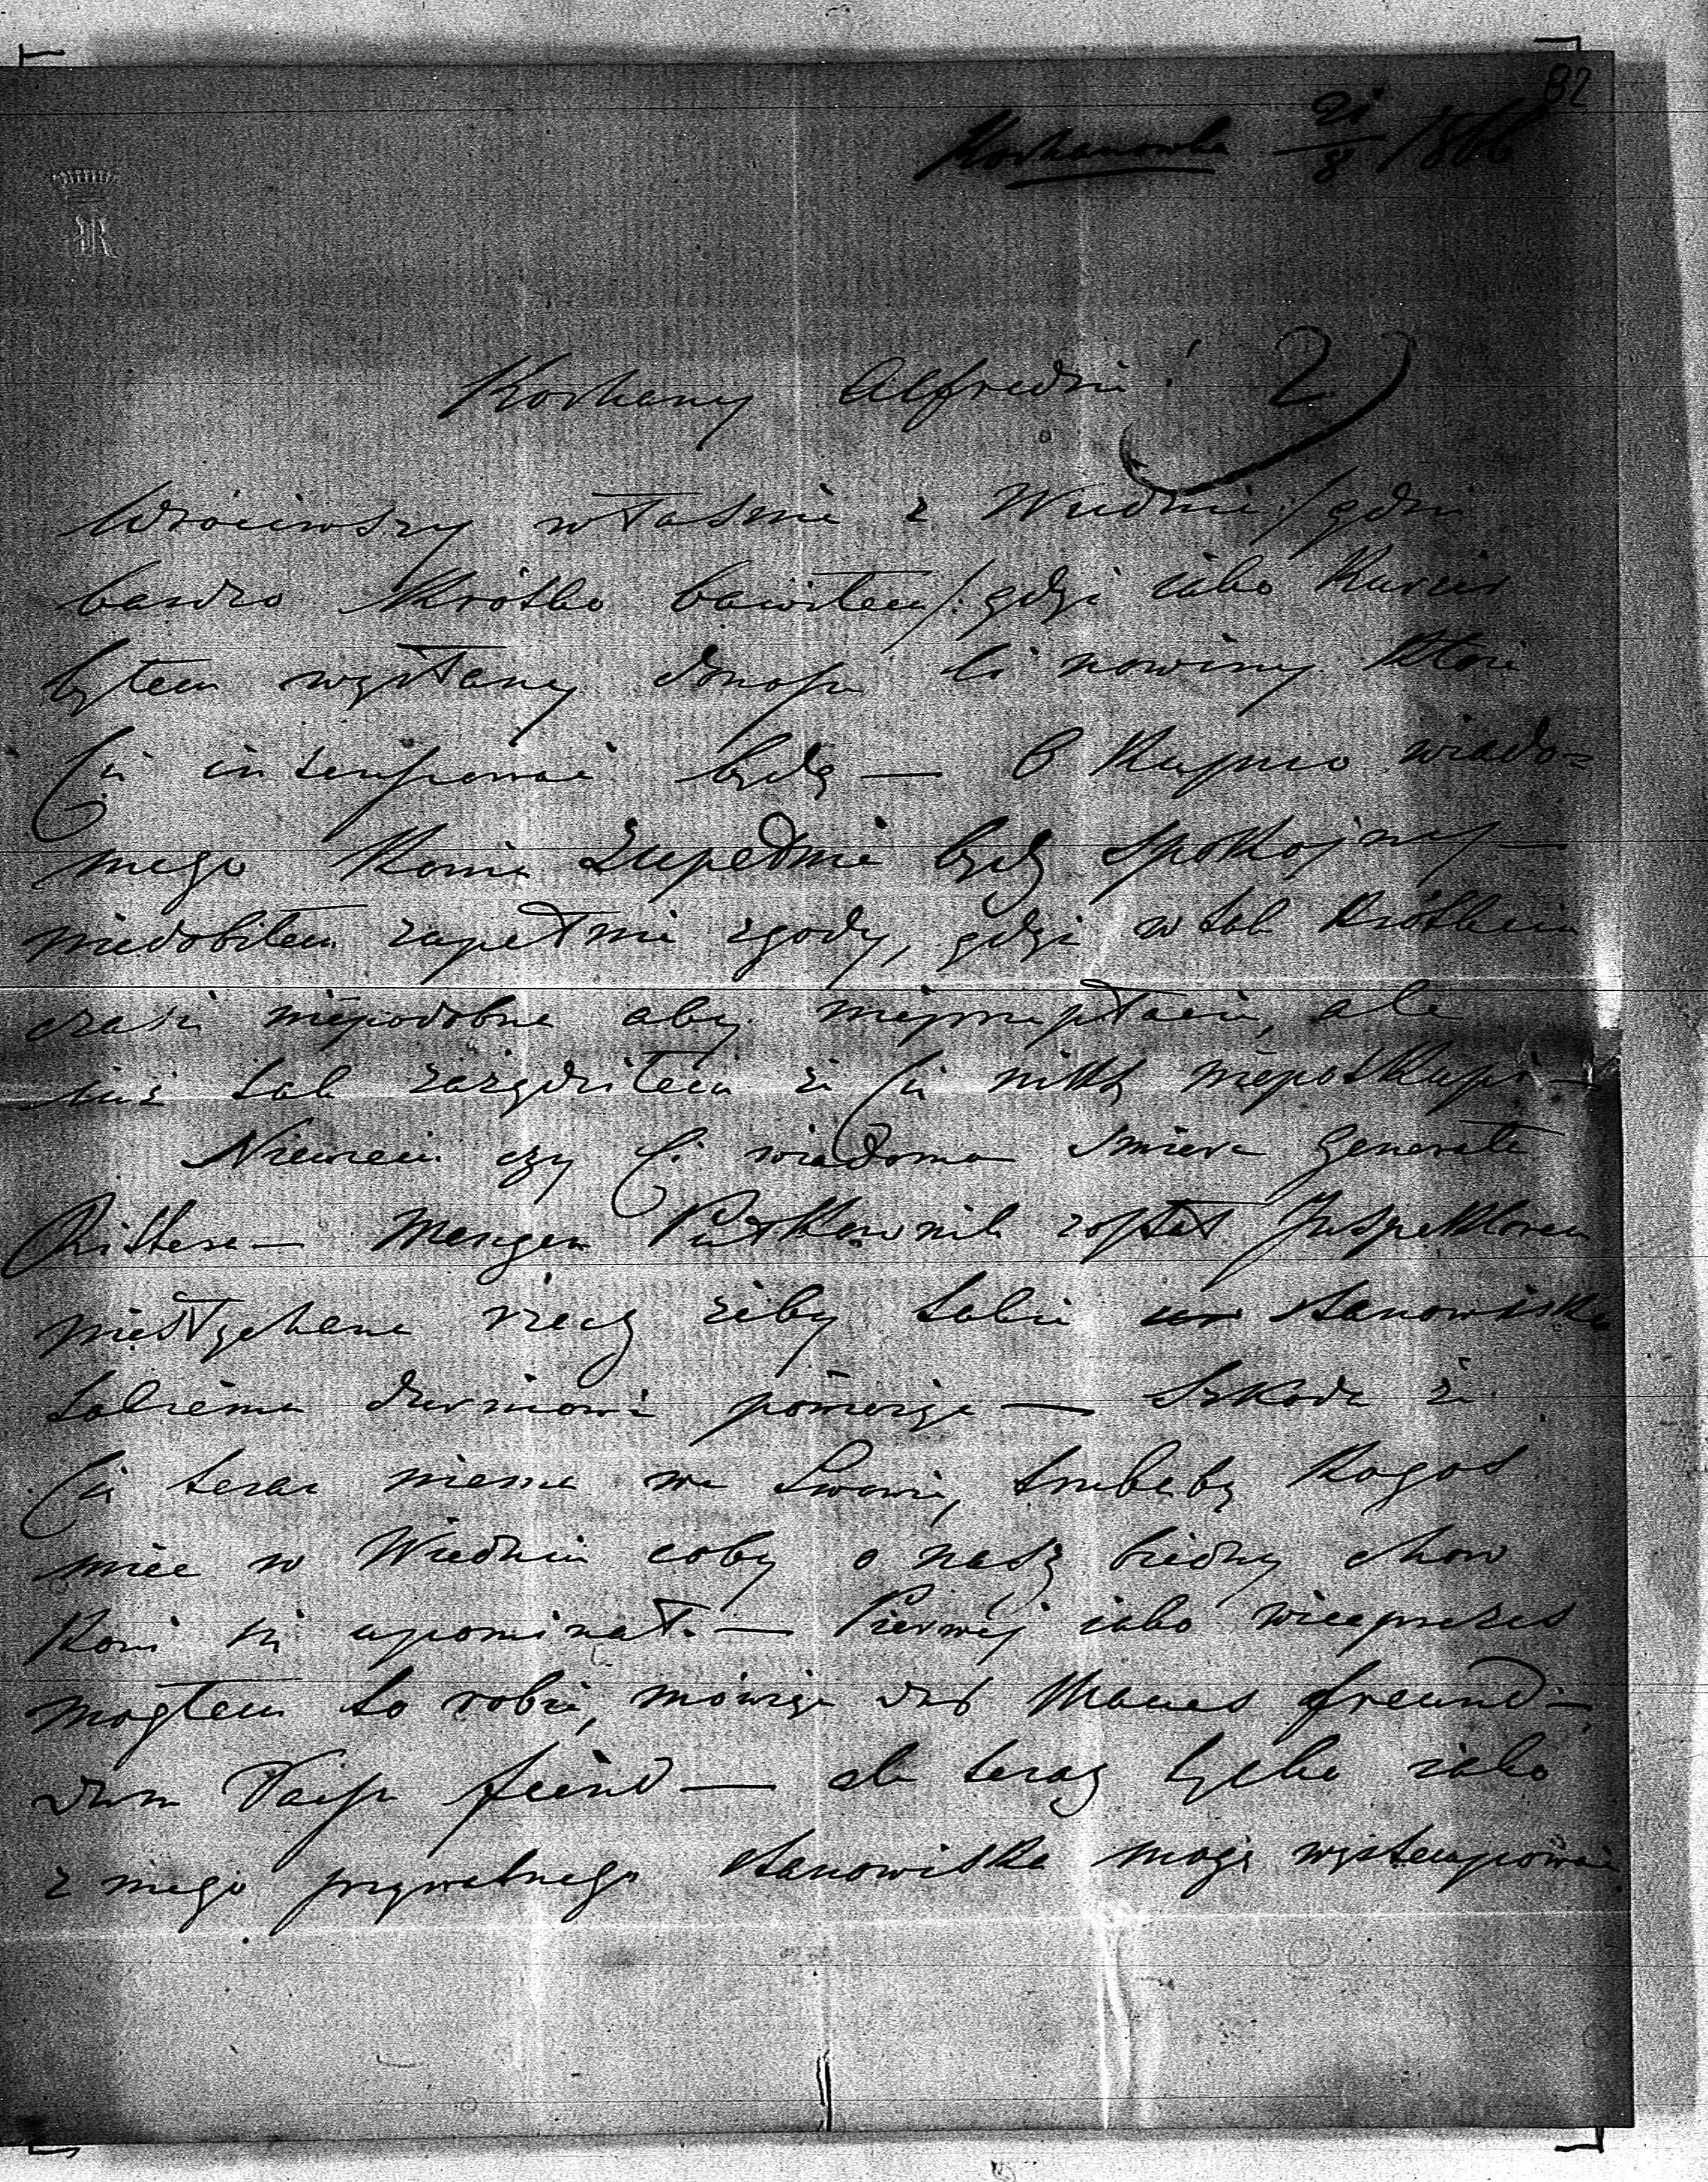 82
Kochanówka 21/8 1866
Kochany Alfredzie! 2)
Wróciwszy właśnie z Wiednia /: gdzie
bardzo krótko bawiłem :/ gdzi iako Kurier
byłem wysłany donoszę Ci nowiny które
Cię interesować będą — O Kupno wiado=
mego Konia zupełnie bądź spokojny —
niedobiłem zupełnie zgody, gdyż w tak krótkim
czasie niepodobna aby nieprzepłacić, ale
już tak zarządziłem że Ci nikt niepodkupi —
Niewiem czy Ci wiadoma śmierć Generała
Rittera — Mengen Pułkownik został Inspektorem
niesłychana rzecz żeby takie stanowisko
takiemu durniowi powierzyć — Szkoda że
Cię teraz niema we Lwowie, trzebaby kogoś
mieć w Wiedniu coby o nasz biedny chow
Koni się upominał. — Pierwéj iako wiceprezes
mogłem to robić, mówiąc des Mannes freund —
dem feind — ale teraz tylko iako
z mego prywatnego stanowiska mogę występować